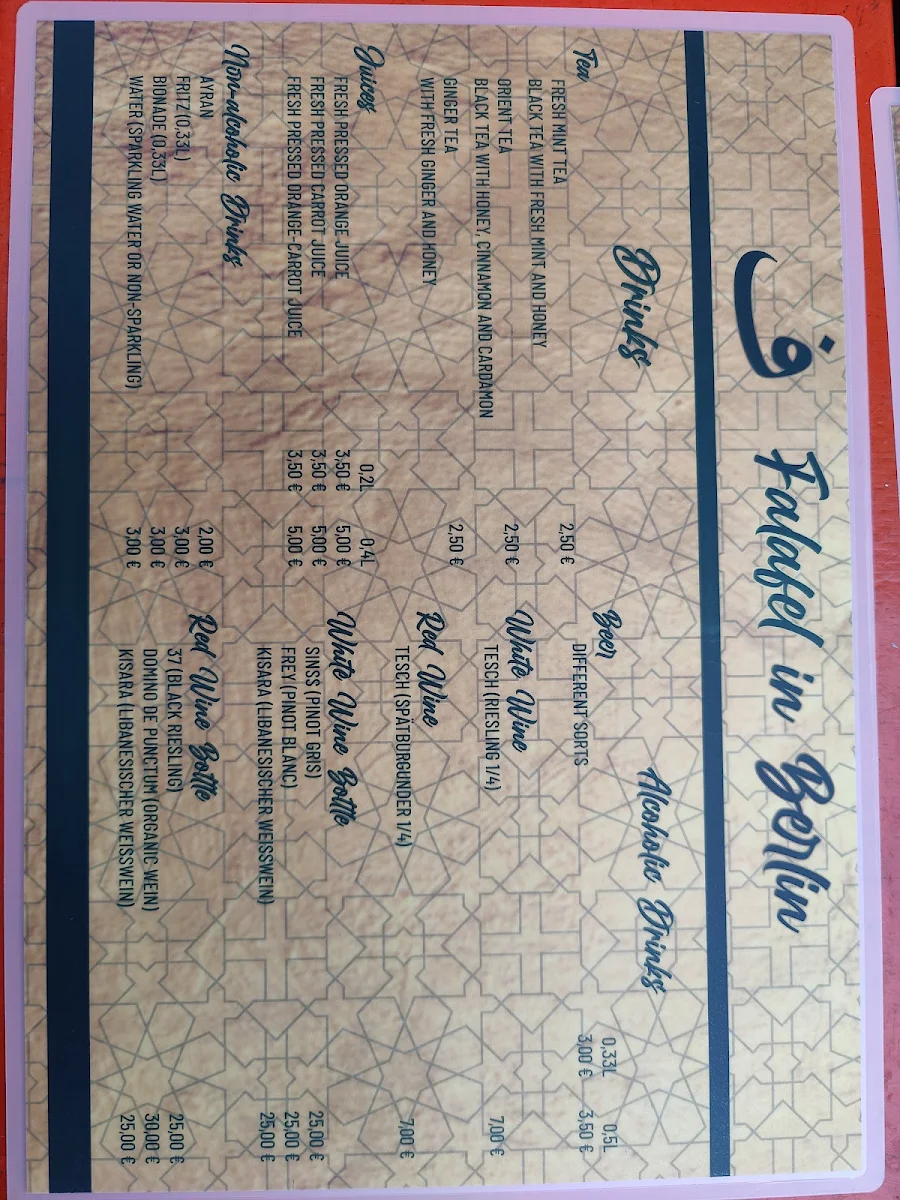 ف Falafel in Berlin
Drinks
Tea
FRESH MINT TEA 2,50 €
BLACK TEA WITH FRESH MINT AND HONEY
ORIENT TEA 2,50 €
BLACK TEA WITH HONEY, CINNAMON AND CARDAMON
GINGER TEA 2,50 €
WITH FRESH GINGER AND HONEY
Juices 0,2L 0,4L
FRESH PRESSED ORANGE JUICE 3,50 € 5,00 €
FRESH PRESSED CARROT JUICE 3,50 € 5,00 €
FRESH PRESSED ORANGE-CARROT JUICE 3,50 € 5,00 €
Non-alcoholic Drinks
AYRAN 2,00 €
FRITZ (0,33L) 3,00 €
BIONADE (0,33L) 3,00 €
WATER (SPARKLING WATER OR NON-SPARKLING) 3,00 €
Alcoholic Drinks
Beer 0,33L 0,5L
DIFFERENT SORTS 3,00 € 3,50 €
White Wine
TESCH (RIESLING 1/4) 7,00 €
Red Wine
TESCH (SPÄTBURGUNDER 1/4) 7,00 €
White Wine Bottle
SINSS (PINOT GRIS) 25,00 €
FREY (PINOT BLANC) 25,00 €
KISARA (LIBANESISCHER WEISSWEIN) 25,00 €
Red Wine Bottle
37 (BLACK RIESLING) 25,00 €
DOMINO DE PUNCTUM (ORGANIC WEIN) 30,00 €
KISARA (LIBANESISCHER WEISSWEIN) 25,00 €